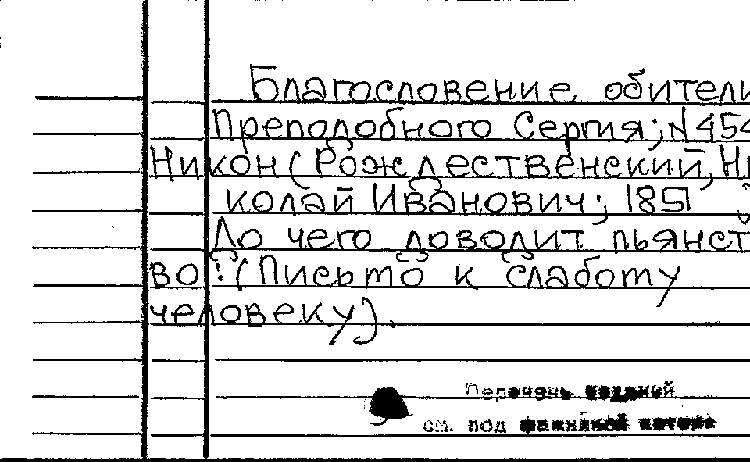 Благословение обители
Преподобного Сергия; N454
Никон (Рождественский, Ни
колай Иванович; 1851
До чего доводит пьянст
во! (Письмо к слабому
человеку).
Перечень изданий
см. под фамилией автора